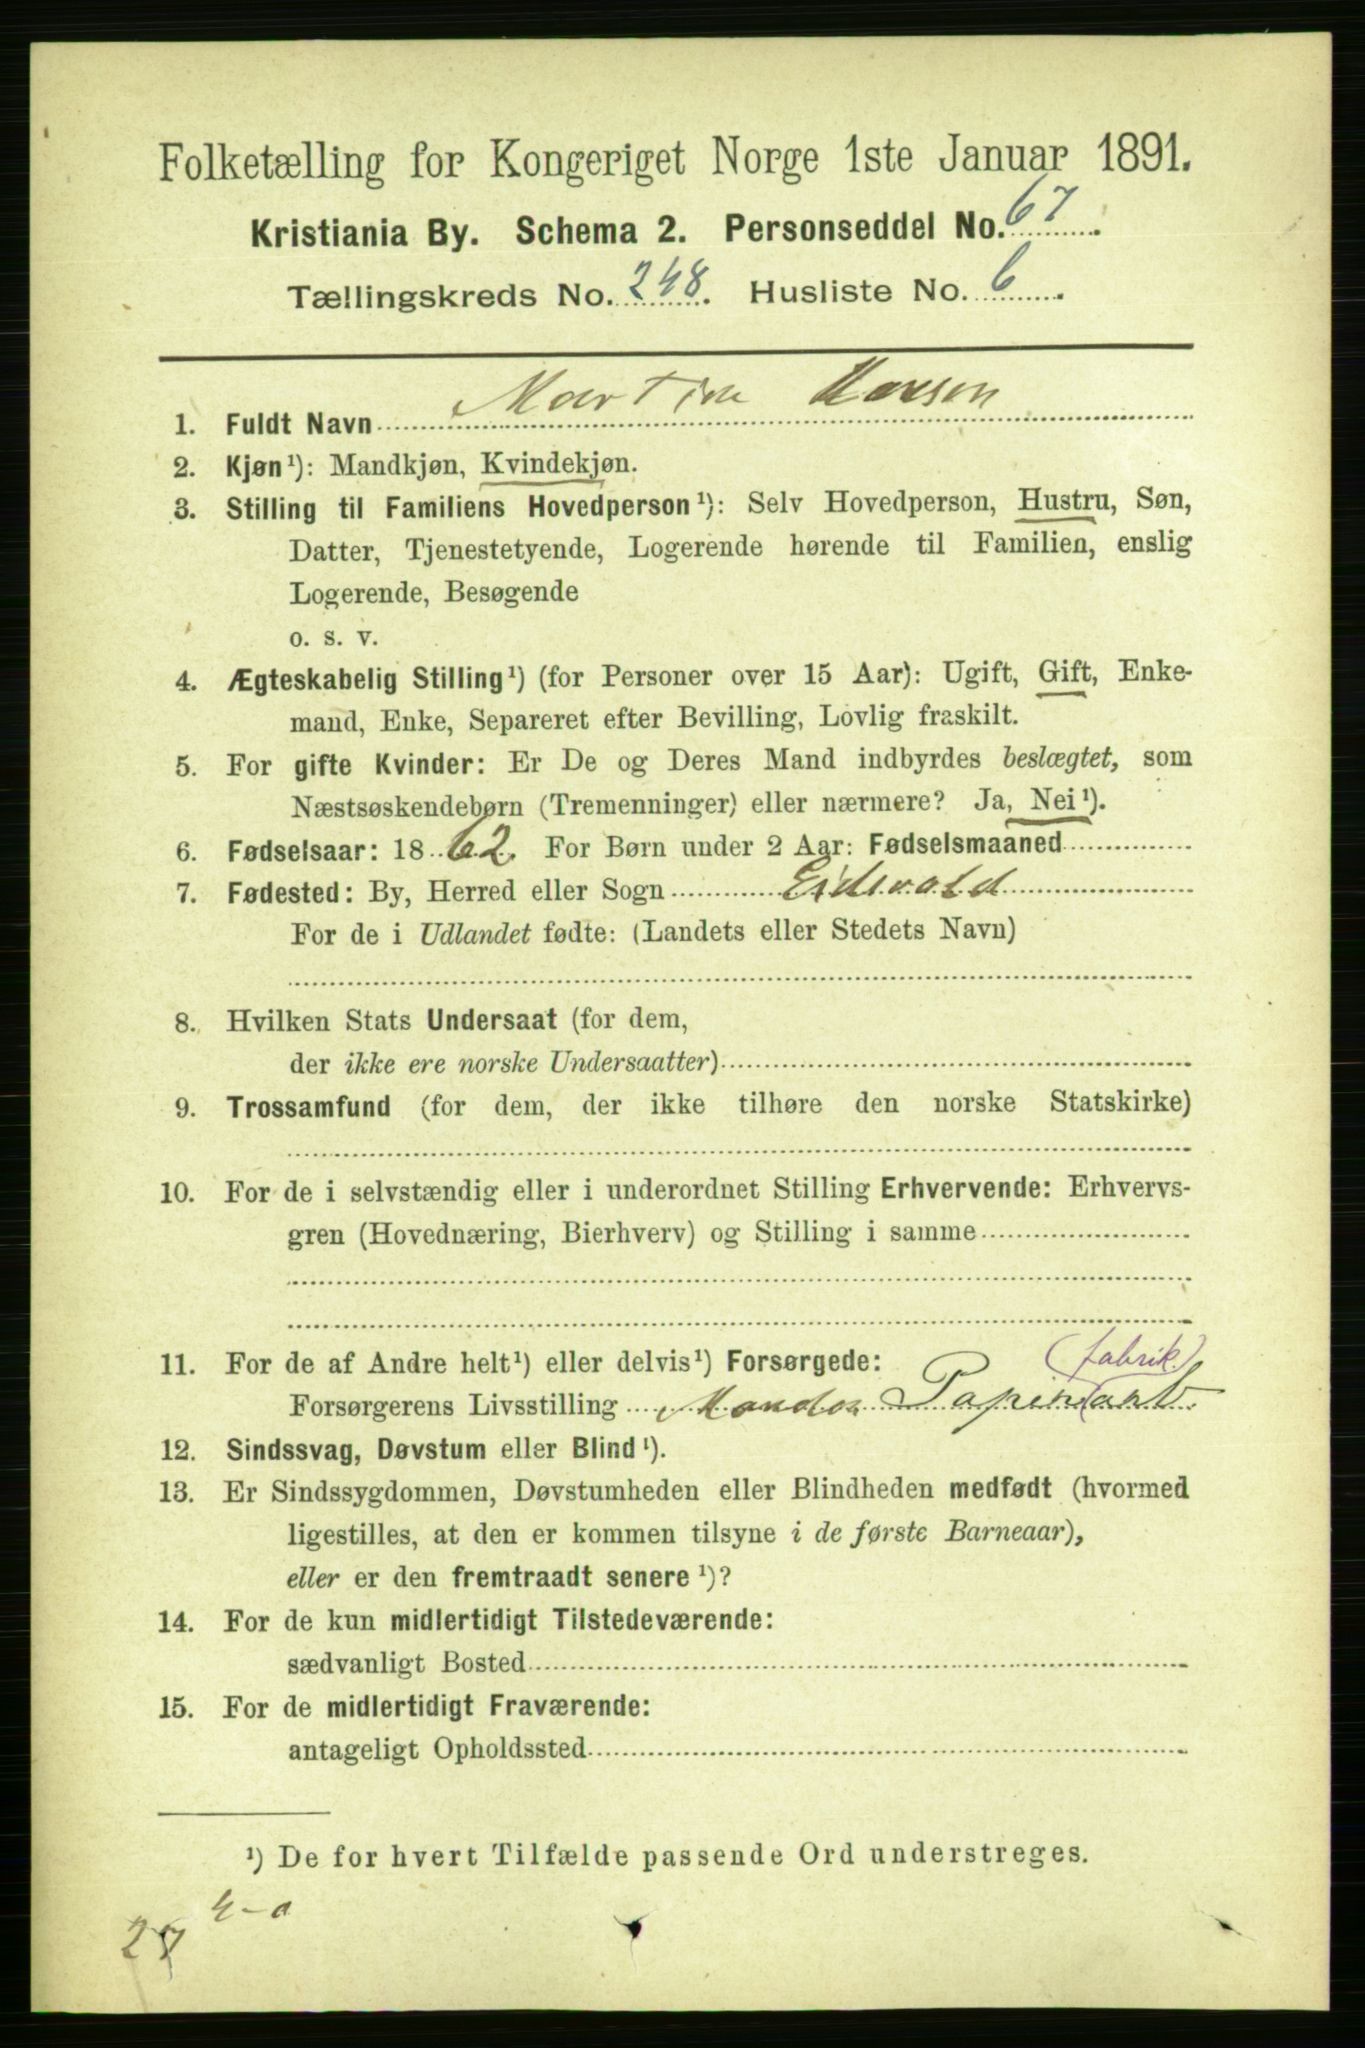 Folketælling for Kongeriget Norge 1ste Januar 1891.
Kristiania By. Schema 2. Personseddel No. 67.
Tællingskreds No. 248. Husliste No. 6.
1. Fuldt Navn Martine
2. Kjøn¹): Mandkjøn, Kvindekjøn.
3. Stilling til Familiens Hovedperson¹): Selv Hovedperson, Hustru, Søn,
Datter, Tjenestetyende, Logerende hørende til Familien, enslig
Logerende, Besøgende
o. s. v.
4. Ægteskabelig Stilling¹) (for Personer over 15 Aar): Ugift, Gift, Enke-
mand, Enke, Separeret efter Bevilling, Lovlig fraskilt.
5. For gifte Kvinder: Er De og Deres Mand indbyrdes beslægtet, som
Næstsøskendebørn (Tremenninger) eller nærmere? Ja, Nei¹).
6. Fødselsaar: 1862. For Børn under 2 Aar: Fødselsmaaned
7. Fødested: By, Herred eller Sogn Eidsvold
For de i Udlandet fødte: (Landets eller Stedets Navn)
8. Hvilken Stats Undersaat (for dem,
der ikke ere norske Undersaatter)
9. Trossamfund (for dem, der ikke tilhøre den norske Statskirke)
10. For de i selvstændig eller i underordnet Stilling Erhvervende: Erhvervs-
gren (Hovednæring, Bierhverv) og Stilling i samme
11. For de af Andre helt¹) eller delvis¹) Forsørgede:
(fabrik)
Forsørgerens Livsstilling
12. Sindssvag, Døvstum eller Blind¹).
13. Er Sindssygdommen, Døvstumheden eller Blindheden medfødt (hvormed
ligestilles, at den er kommen tilsyne i de første Barneaar),
eller er den fremtraadt senere¹)?
14. For de kun midlertidigt Tilstedeværende:
sædvanligt Bosted
15. For de midlertidigt Fraværende:
antageligt Opholdssted
¹) De for hvert Tilfælde passende Ord understreges.